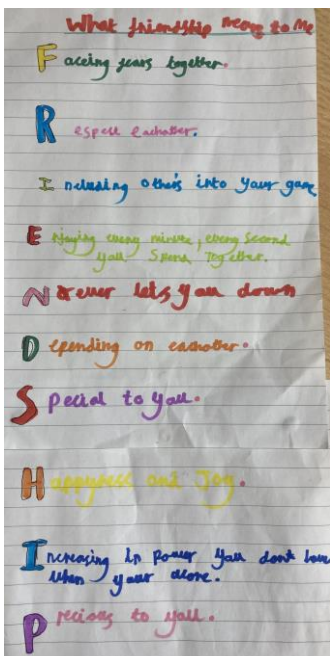 What friendship means to Me
Faceing fears together.
Respect eachother.
Including others into your game
Enjoying every minute, every second
you Spend Together.
Never lets you down
Depending on eachother.
Special to you.
Happyness and Joy.
Increasing in Power you dont have
when your alone.
Precious to you.